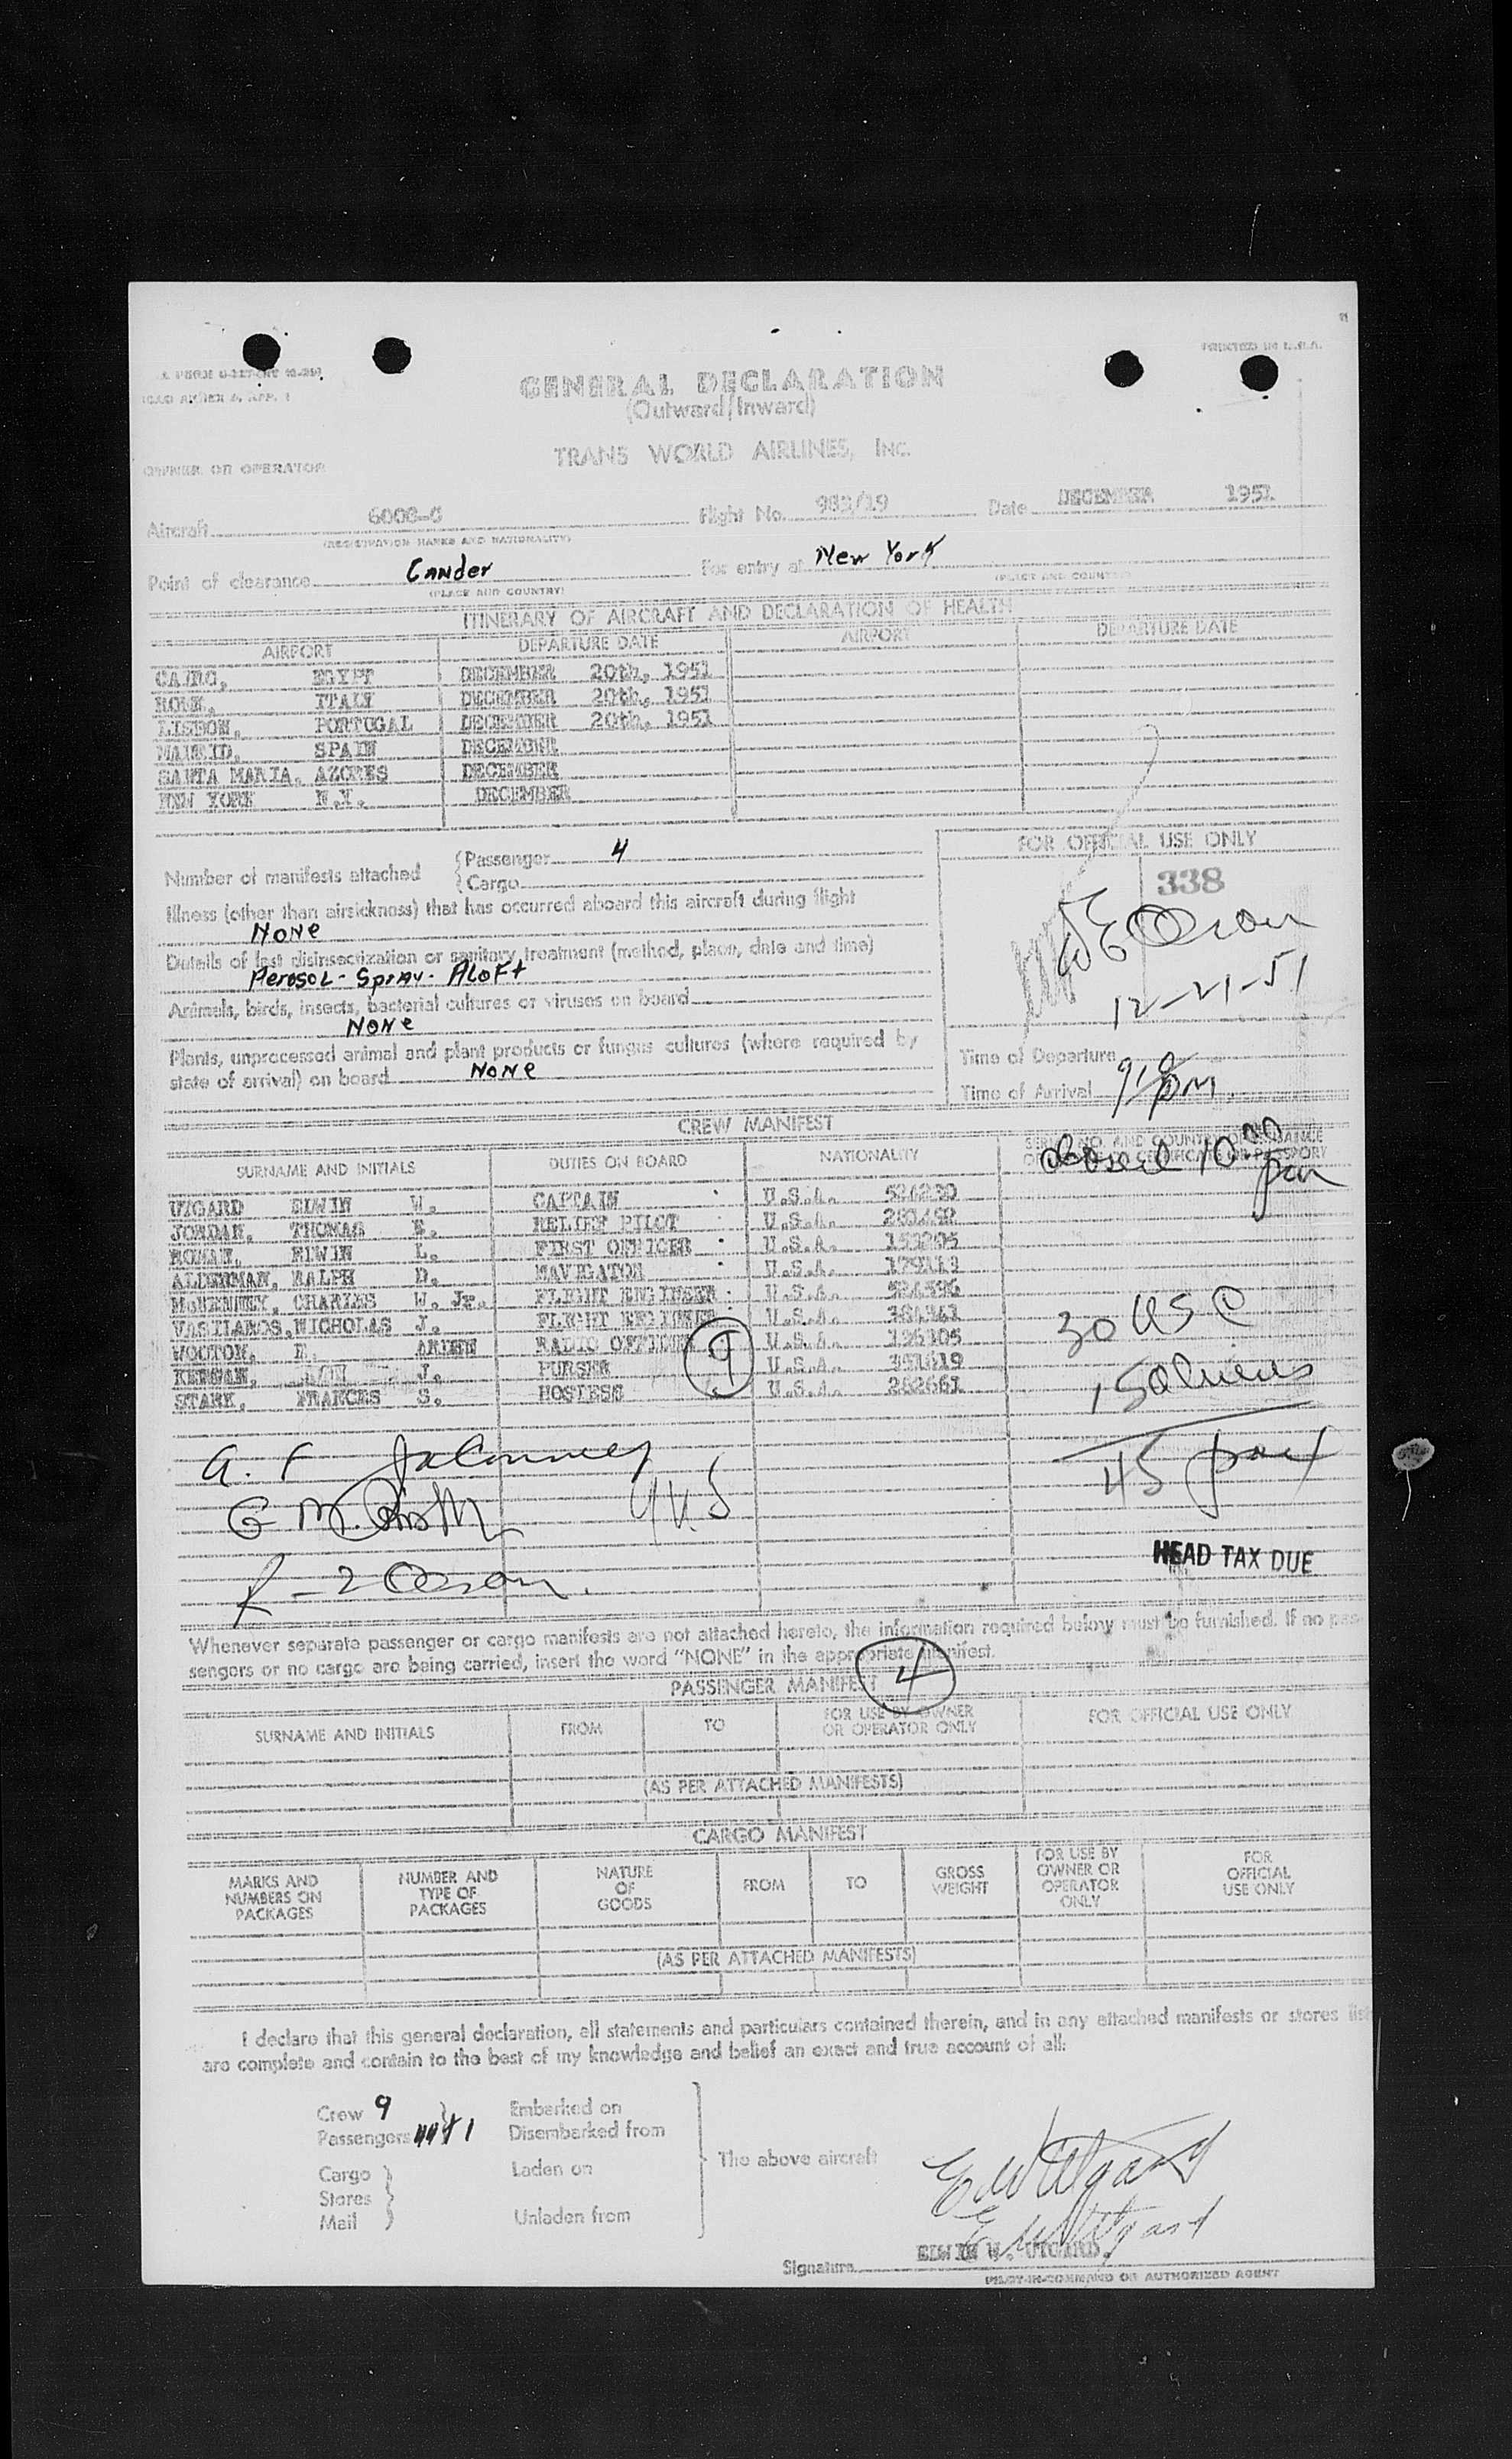 PRINTED IN U.S.A.
GENERAL DECLARATION
(Outward/Inward)
TRANS WORLD AIRLINES, INC.
OWNER OR OPERATOR
Aircraft 6000-C Flight No. /19 Date DECEMBER 1951
(REGISTRATION MARKS AND NATIONALITY)
Point of clearance Gander For entry at New York
(PLACE AND COUNTRY) (PLACE AND COUNTRY)
ITINERARY OF AIRCRAFT AND DECLARATION OF HEALTH
AIRPORT DEPARTURE DATE AIRPORT DEPARTURE DATE
CAIRO, EGYPT DECEMBER 20th, 1951
ROME, ITALY DECEMBER 20th, 1951
LISBON, PORTUGAL DECEMBER 20th, 1951
MADRID, SPAIN DECEMBER
SANTA MARIA, AZORES DECEMBER
NEW YORK N.Y. DECEMBER
FOR OFFICIAL USE ONLY
Number of manifests attached { Passenger 4
{ Cargo
338
Illness (other than airsickness) that has occurred aboard this aircraft during flight
None
Details of last disinsectization or sanitary treatment (method, place, date and time)
Aerosol - Spray - Aloft
12-21-51
Animals, birds, insects, bacterial cultures or viruses on board
None
Plants, unprocessed animal and plant products or fungus cultures (where required by
state of arrival) on board None
Time of Departure
Time of Arrival 9 10 pm
CREW MANIFEST
SURNAME AND INITIALS DUTIES ON BOARD NATIONALITY
10 00 pm
UTGARD ELWIN W. CAPTAIN U.S.A.
JORDAN, THOMAS E. RELIEF PILOT U.S.A.
ROMAN, EDWIN L. FIRST OFFICER U.S.A.
ALDERMAN, RALPH D. NAVIGATOR U.S.A.
CHARLES W. Jr. FLIGHT ENGINEER U.S.A.
VASILAROS, NICHOLAS J. FLIGHT ENGINEER U.S.A.
WOOTON, E. ARDEN RADIO OFFICER U.S.A.
J. PURSER U.S.A.
STARK, FRANCES S. HOSTESS U.S.A. 262661
9
30 USC
15 aliens
45 pax
HEAD TAX DUE
Whenever separate passenger or cargo manifests are not attached hereto, the information required below must be furnished. If no pas-
sengers or no cargo are being carried, insert the word "NONE" in the appropriate manifest.
PASSENGER MANIFEST 4
SURNAME AND INITIALS FROM TO FOR USE BY OWNER OR OPERATOR ONLY FOR OFFICIAL USE ONLY
(AS PER ATTACHED MANIFESTS)
CARGO MANIFEST
MARKS AND NUMBERS ON PACKAGES NUMBER AND TYPE OF PACKAGES NATURE OF GOODS FROM TO GROSS WEIGHT FOR USE BY OWNER OR OPERATOR ONLY FOR OFFICIAL USE ONLY
(AS PER ATTACHED MANIFESTS)
I declare that this general declaration, all statements and particulars contained therein, and in any attached manifests or stores list
are complete and contain to the best of my knowledge and belief an exact and true account of all:
Crew 9 Embarked on
Passengers 44+1 Disembarked from
The above aircraft
Cargo Laden on
Stores
Mail Unladen from
E W Utgard
E W Utgard
ELWIN W. UTGARD.
Signature
PILOT-IN-COMMAND OR AUTHORIZED AGENT